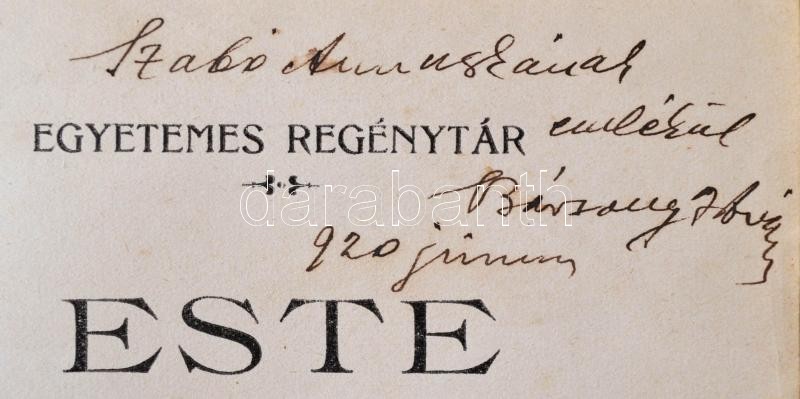 Szabó Annuskának
EGYETEMES REGÉNYTÁR
emlékül
darabanth
Bársony István
920 június
ESTE